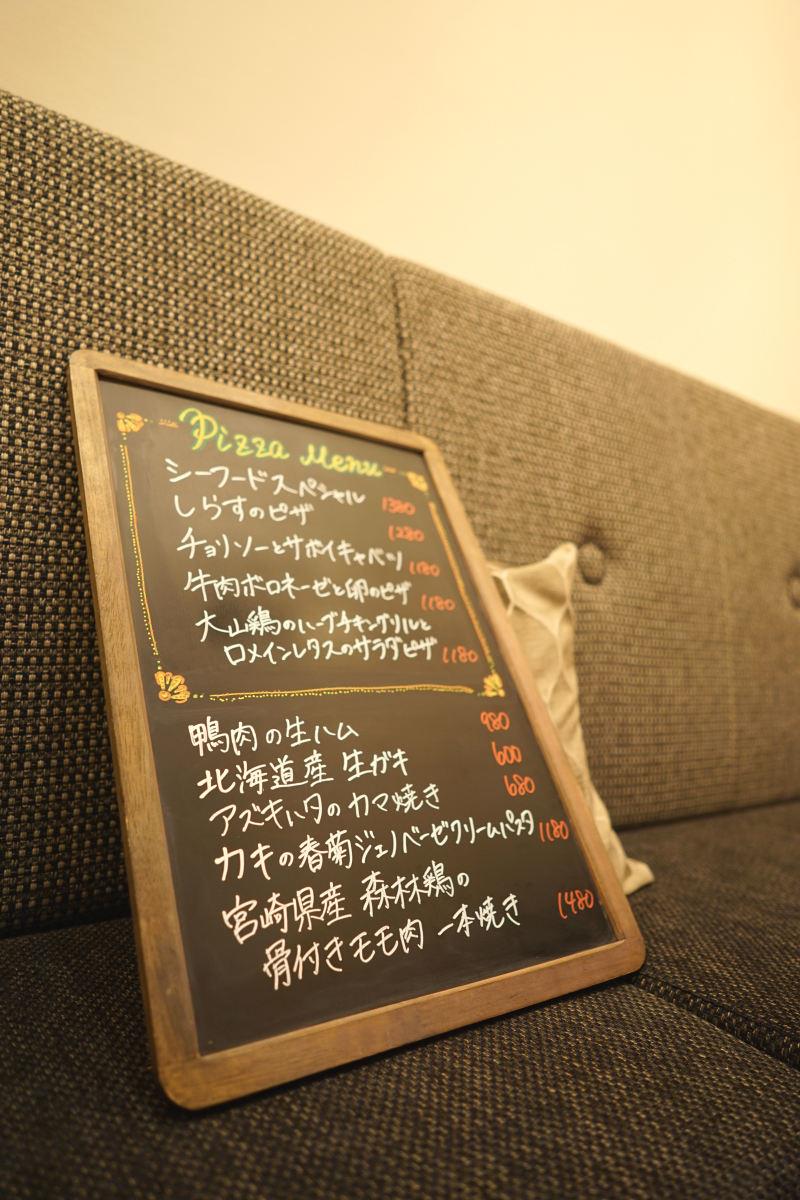 Pizza Menu
シーフードスペシャル 1380
しらすのピザ 1280
チョリソーとサボイキャベツ 1180
牛肉ボロネーゼと卵のピザ 1180
大山鶏のハーブチキングリルと
ロメインレタスのサラダピザ 1180
鴨肉の生ハム 980
北海道産 生ガキ 600
アズキハタのカマ焼き 680
カキの春菊ジェノベーゼクリームパスタ 1180
宮崎県産 森林鶏の
骨付きモモ肉 一本焼き 1480